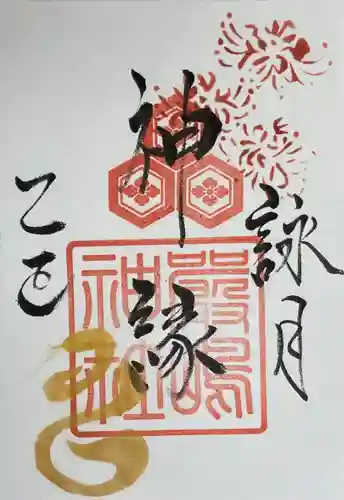 詠月
神縁
乙巳
嚴嶋
神社